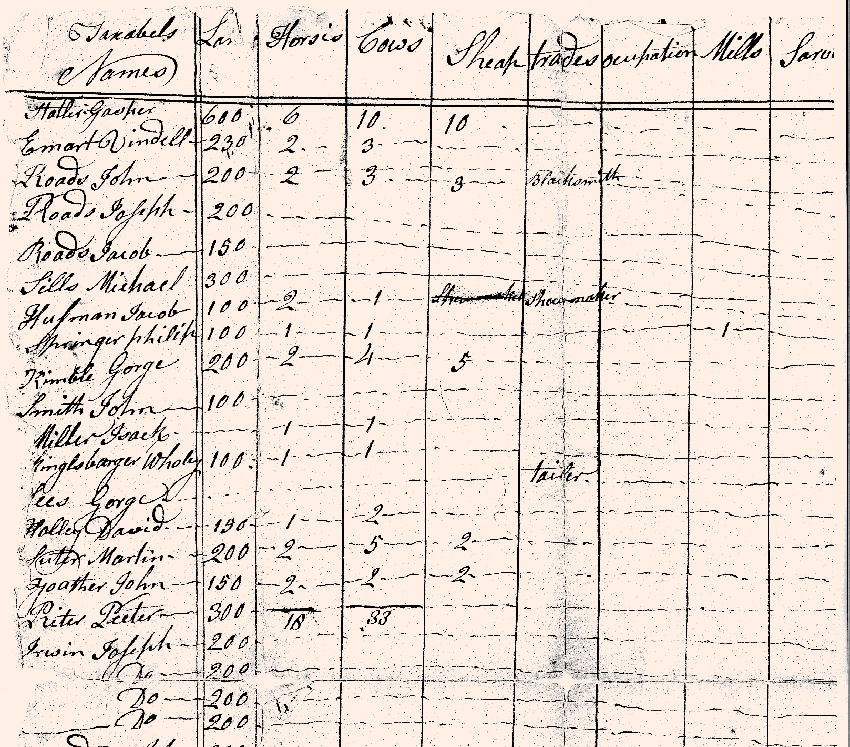 Taxabels Lan Horsis Cows Sheap trades ocupation Mills Sarv
Names
Holler Gasper 600 6 10 10
Emart Vindell 230 2 3
Roads John 200 2 3 3 Blacksmith
Roads Joseph 200
Roads Jacob 150
Sills Michael 300
Hufman Jacob 100 2 1 Shoemaker Shoemaker
Springer philip 100 1 1 1
Kimble Gorge 200 2 4 5
Smith John 100
Miller Isack 1 1
100 1 1 tailer
Lees Gorge
Holley David 190 1 2
Suter Martin 200 2 5 2
John 150 2 2 2
Riter Peeter 300 18 33
Irwin Joseph 200
Do 200
Do 200
Do 200